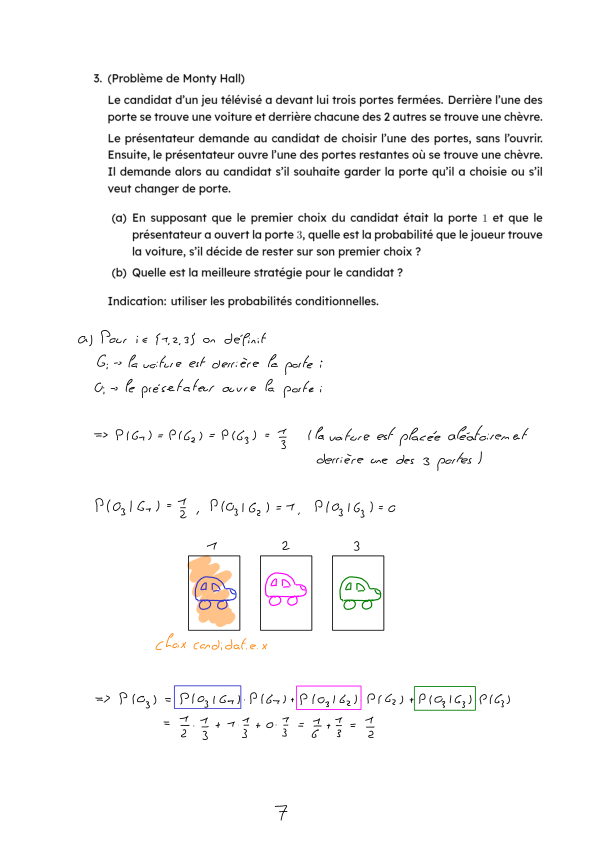 3. (Problème de Monty Hall)
Le candidat d'un jeu télévisé a devant lui trois portes fermées. Derrière l'une des
porte se trouve une voiture et derrière chacune des 2 autres se trouve une chèvre.
Le présentateur demande au candidat de choisir l'une des portes, sans l'ouvrir.
Ensuite, le présentateur ouvre l'une des portes restantes où se trouve une chèvre.
Il demande alors au candidat s'il souhaite garder la porte qu'il a choisie ou s'il
veut changer de porte.
(a) En supposant que le premier choix du candidat était la porte 1 et que le
présentateur a ouvert la porte 3, quelle est la probabilité que le joueur trouve
la voiture, s'il décide de rester sur son premier choix ?
(b) Quelle est la meilleure stratégie pour le candidat ?
Indication: utiliser les probabilités conditionnelles.
a) Pour i ∈ {1,2,3} on définit
G_i → la voiture est derrière la porte i
O_i → le présentateur ouvre la porte i
=> P(G_1) = P(G_2) = P(G_3) = 1/3 (la voiture est placée aléatoirement
derrière une des 3 portes)
P(O_3|G_1) = 1/2, P(O_3|G_2) = 1, P(O_3|G_3) = 0
1 2 3
choix candidat.e.x
=> P(O_3) = P(O_3|G_1) · P(G_1) + P(O_3|G_2) · P(G_2) + P(O_3|G_3) P(G_3)
= 1/2 · 1/3 + 1 · 1/3 + 0 · 1/3 = 1/6 + 1/3 = 1/2
7